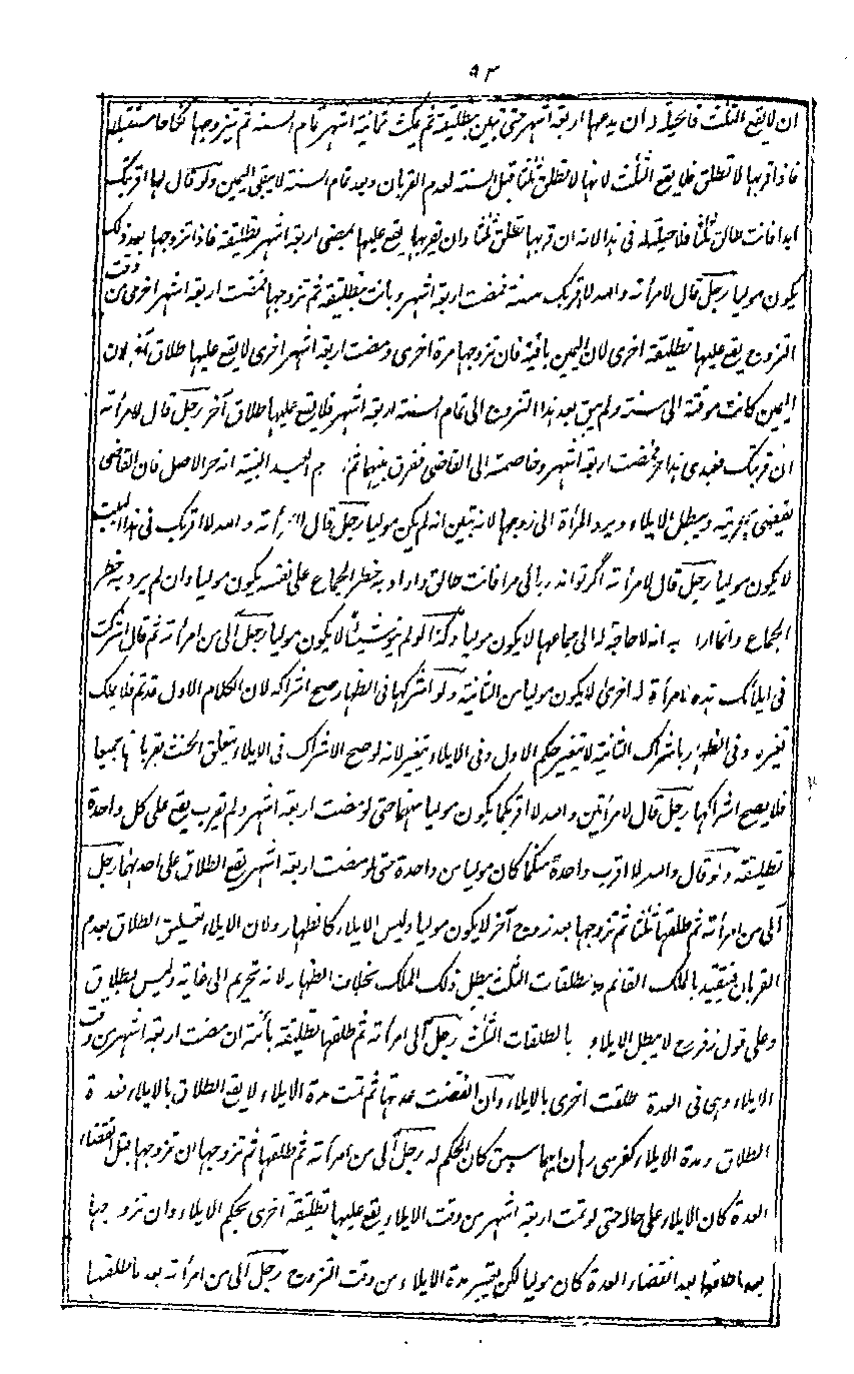 ٩٣
ان لا يقع الثلث فالحيلة ان يدعها اربعة اشهر حتى تبين بتطليقة ثم يمكث ثمانية اشهر تمام السنة ثم يتزوجها نكاحا مستقبلا
فاذا قربها لا تطلق فلا يقع الثلث لانها لا تطلق ثلثا قبل السنة لعدم القربان وبعد تمام السنة لا يبقى اليمين ولو قال لها اقربك
ابدا فانت طالق ثلثا فلا حيلة له فى هذا لانه ان قربها تطلق ثلثا وان لم يقربها يقع عليها بمضى اربعة اشهر تطليقة فاذا تزوجها بعد ذلك
يكون موليا رجل قال لامرأته والله لا اقربك سنة فمضت اربعة اشهر وبانت بتطليقة ثم تزوجها فمضت اربعة اشهر اخرى من وقت
التزوج يقع عليها تطليقة اخرى لان اليمين باقية فان تزوجها مرة اخرى ومضت اربعة اشهر اخرى لا يقع عليها طلاق آخر لان
اليمين كانت موقتة الى سنة ولم يبق بعد هذا التزوج الى تمام السنة اربعة اشهر فلا يقع عليها طلاق آخر رجل قال لامرأته
ان قربتك فعبدى هذا حر فمضت اربعة اشهر وخاصمته الى القاضى ففرق بينهما ثم العبد البينة انه حر الاصل فان القاضى
يقضى بحريته ويبطل الايلاء ويرد المرأة الى زوجها لانه تبين انه لم يكن موليا رجل قال لامرأته والله لا اقربك فى هذا البيت
لا يكون موليا رجل قال لامرأته اگر توانه ربالى مرا فانت طالق واراد به حظر الجماع على نفسه يكون موليا وان لم يرد به حظر
الجماع وانما اراد به انه لا حاجة له الى جماعها لا يكون موليا وكذا لو لم ينو شيئا لا يكون موليا رجل آلى من امرأته ثم قال اشركت
فى ايلائك هذه لامرأة له اخرى لا يكون موليا من الثانية ولو اشركها فى الظهار صح اشراكه لان الكلام الاول قد تم فلا يملك
تغييره وفى الظهار باشراك الثانية لا يتغير حكم الاول وفى الايلاء يتغير لانه لو صح الاشراك فى الايلاء يتعلق الحنث بقربانهما جميعا
فلا يصح اشراكها رجل قال لامرأتين والله لا اقربكما يكون موليا منهما حتى لو مضت اربعة اشهر ولم يقرب يقع على كل واحدة
تطليقة ولو قال والله لا اقرب واحدة منكما كان موليا من واحدة حتى لو مضت اربعة اشهر يقع الطلاق على احدهما رجل
آلى من امرأته ثم طلقها ثلثا ثم تزوجها بعد زوج آخر لا يكون موليا وليس الايلاء كالظهار ولان الايلاء تعليق الطلاق بعدم
القربان فيتقيد بالملك القائم وبطلقات الثلث يبطل ذلك الملك بخلاف الظهار لانه تحريم الى غاية وليس بطلاق
وعلى قول زفر رح لا يبطل الايلاء بالطلقات الثلث رجل آلى امرأته ثم طلقها تطليقة بائنة ان مضت اربعة اشهر من وقت
الايلاء وهى فى العدة طلقت اخرى بالايلاء وان انقضت عدتها ثم تمت مدة الايلاء لا يقع الطلاق بالايلاء فعدة
الطلاق ومدة الايلاء كفرسى رهان ايهما سبق كان الحكم له رجل آلى من امرأته ثم طلقها ثم تزوجها ان تزوجها قبل انقضاء
العدة كان الايلاء على حاله حتى لو تمت اربعة اشهر من وقت الايلاء يقع عليها تطليقة اخرى بحكم الايلاء وان تزوجها
بعد انقضاء العدة كان موليا لكن يعتبر مدة الايلاء من وقت التزوج رجل آلى من امرأته بعد ما طلقها